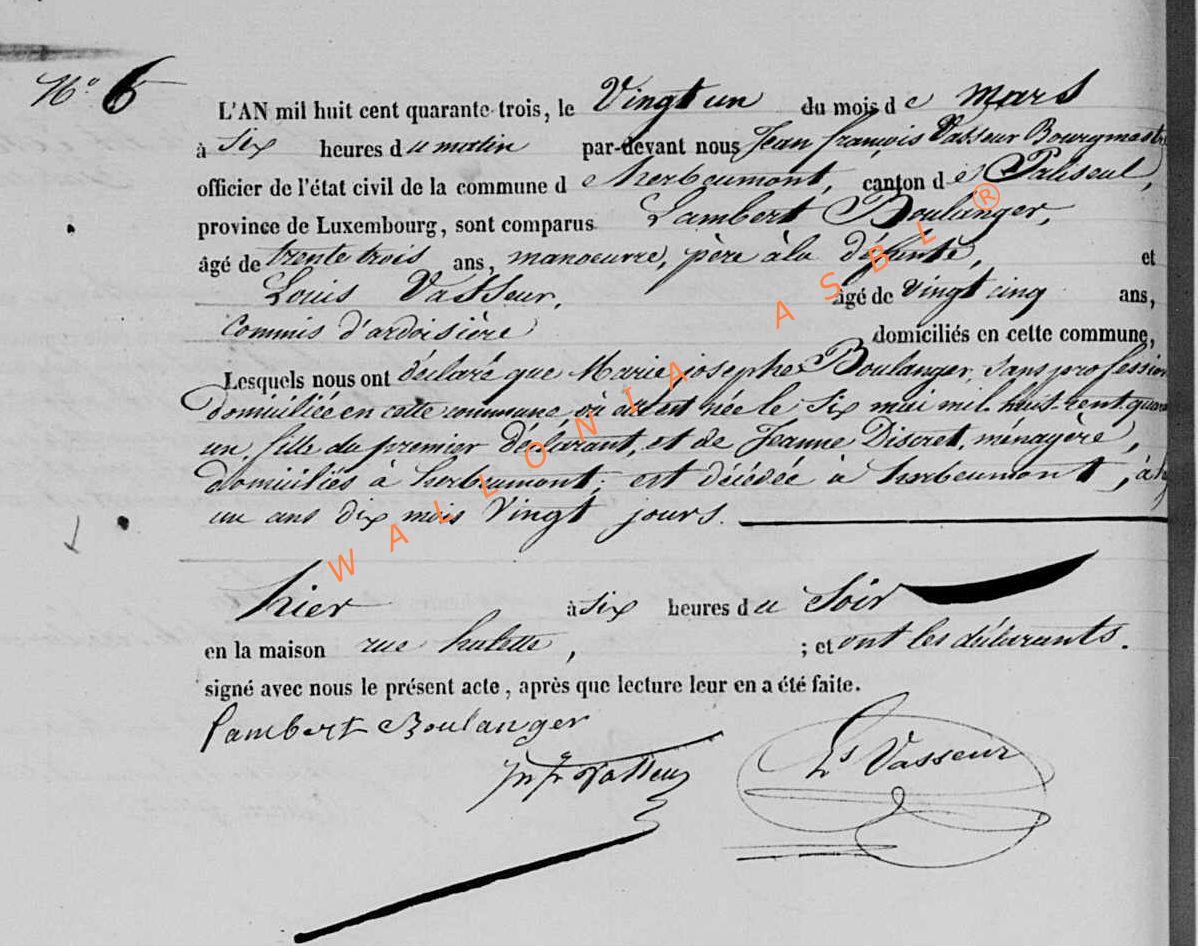 N° 6
L'AN mil huit cent quarante-trois, le Vingt un du mois de mars
à six heures du matin par-devant nous Jean françois Vasseur Bourgmestre
officier de l'état civil de la commune d'herbeumont, canton de Paliseul,
province de Luxembourg, sont comparus Lambert Boulanger,
âgé de trente trois ans, manoeuvre, père à la défunte, et
Louis Vasseur, âgé de vingt cinq ans,
commis d'ardoisière domiciliés en cette commune,
Lesquels nous ont déclaré que Marie josephe Boulanger, sans profession
domiciliée en cette commune où elle est née le six mai mil-huit-cent-quarante
un, fille du premier déclarant, et de Jeanne Discret, ménagère,
domiciliés à herbeumont; est décédée à herbeumont, à
un ans dix mois Vingt jours.
hier à six heures du Soir
en la maison rue hulette, ; et ont les déclarants.
signé avec nous le présent acte, après que lecture leur en a été faite.
Lambert Boulanger
Jn fr Vasseur
Ls Vasseur
WALLONIA ASBL ®